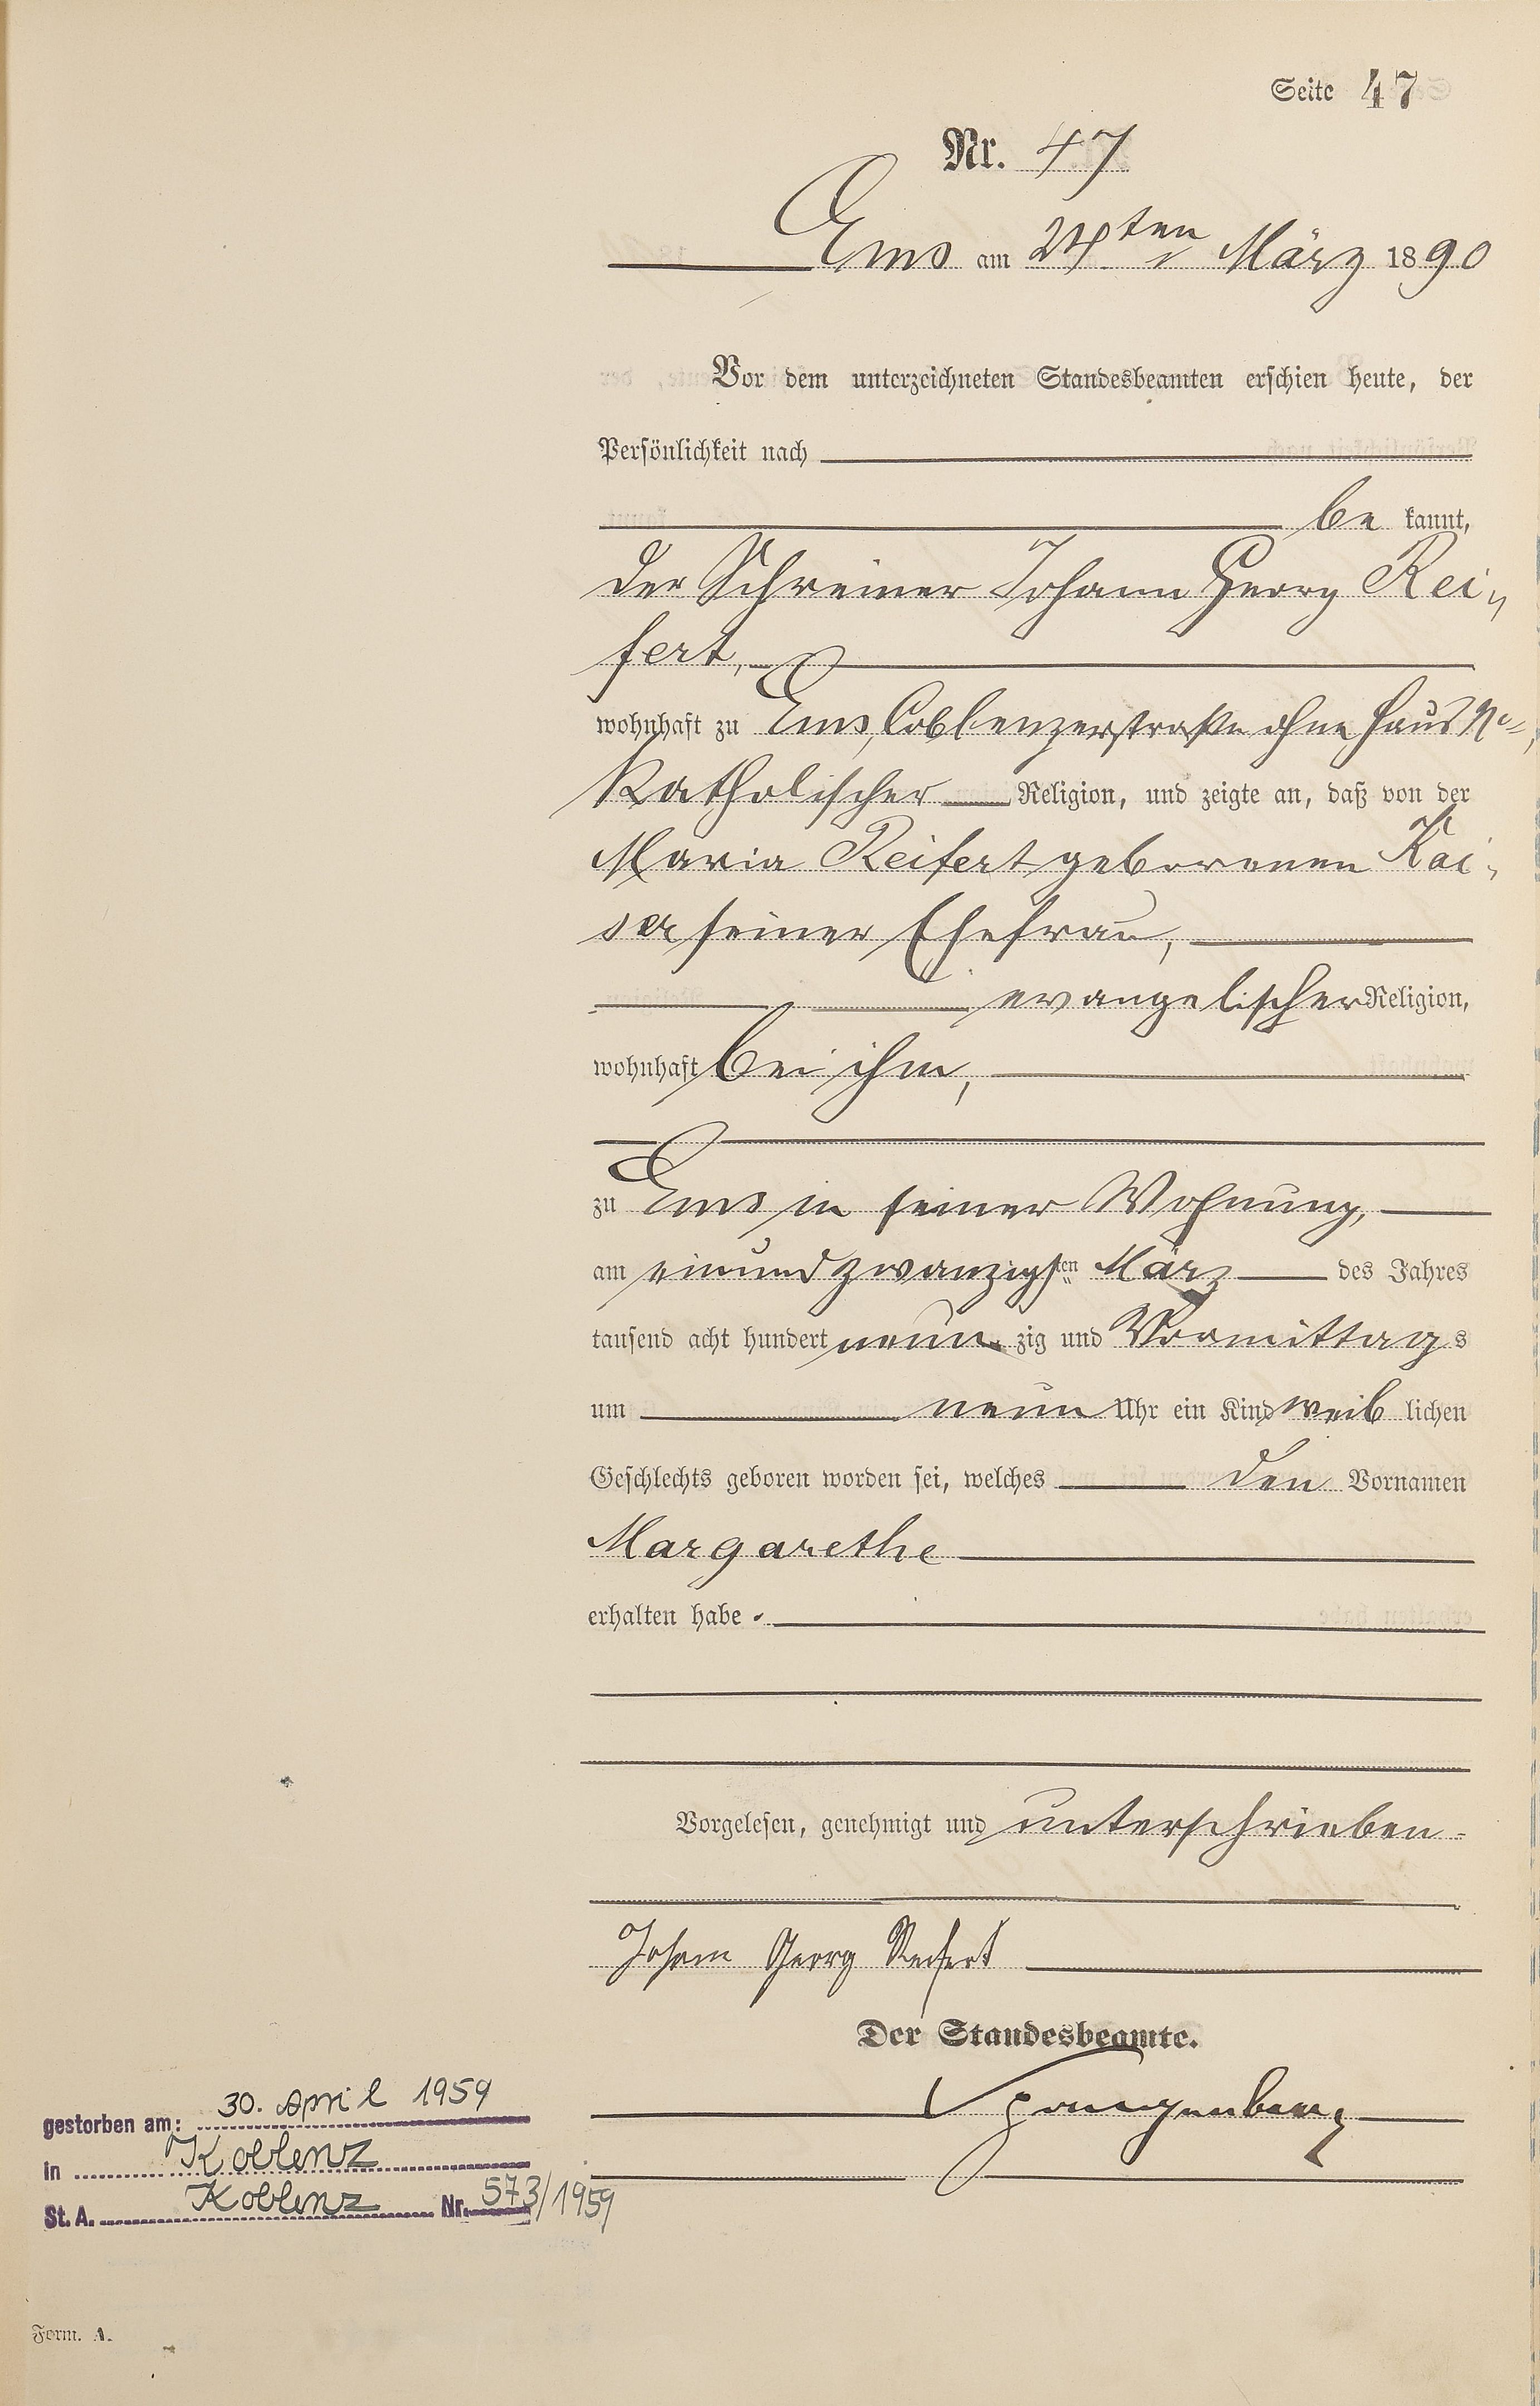 Seite 47
Nr. 47
Ems am 24ten März 1890
Vor dem unterzeichneten Standesbeamten erschien heute, der
Persönlichkeit nach
be kannt,
der Schreiner Johann Georg Rei-
fert,
wohnhaft zu Ems, Coblenzerstraße ohne Haus No,
katholischer Religion, und zeigte an, daß von der
Maria Reifert geborenen Kai-
ser seiner Ehefrau,
evangelischer Religion,
wohnhaft bei ihm,
zu Ems in seiner Wohnung,
am einundzwanzigsten März des Jahres
tausend acht hundert neun zig und Vormittags
um neun Uhr ein Kind weib lichen
Geschlechts geboren worden sei, welches den Vornamen
Margarethe
erhalten habe.
Vorgelesen, genehmigt und unterschrieben
Johann Georg Reifert
Der Standesbeamte.
Spangenberg
gestorben am: 30. April 1959
in Koblenz
St. A. Koblenz Nr. 573/1959
Form. A.